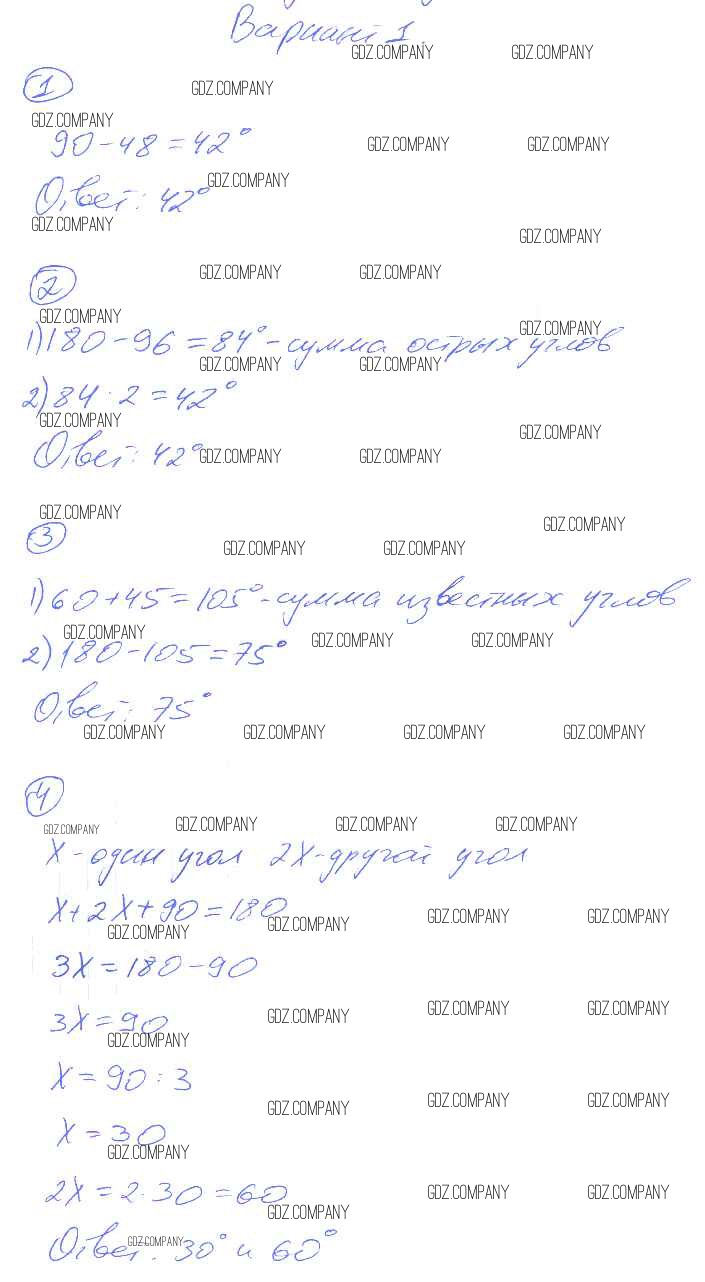 Вариант 1
GDZ.COMPANY GDZ.COMPANY
1
GDZ.COMPANY
GDZ.COMPANY
90-48=42°
GDZ.COMPANY GDZ.COMPANY
GDZ.COMPANY
Ответ: 42°
GDZ.COMPANY
GDZ.COMPANY
2
GDZ.COMPANY GDZ.COMPANY
GDZ.COMPANY
GDZ.COMPANY
1) 180-96=84°-сумма острых углов
GDZ.COMPANY GDZ.COMPANY
2) 84:2=42°
GDZ.COMPANY
GDZ.COMPANY
Ответ: 42°
GDZ.COMPANY GDZ.COMPANY
GDZ.COMPANY
GDZ.COMPANY
3
GDZ.COMPANY GDZ.COMPANY
1) 60+45=105°-сумма известных углов
GDZ.COMPANY
GDZ.COMPANY GDZ.COMPANY
2) 180-105=75°
Ответ: 75°
GDZ.COMPANY GDZ.COMPANY GDZ.COMPANY GDZ.COMPANY
4
GDZ.COMPANY GDZ.COMPANY GDZ.COMPANY GDZ.COMPANY
X-один угол 2X-другой угол
X+2X+90=180
GDZ.COMPANY GDZ.COMPANY GDZ.COMPANY
GDZ.COMPANY
3X=180-90
GDZ.COMPANY GDZ.COMPANY GDZ.COMPANY
3X=90
GDZ.COMPANY
X=90:3
GDZ.COMPANY GDZ.COMPANY GDZ.COMPANY
X=30
GDZ.COMPANY
2X=2·30=60
GDZ.COMPANY GDZ.COMPANY
GDZ.COMPANY
Ответ: 30° и 60°
GDZ.COMPANY